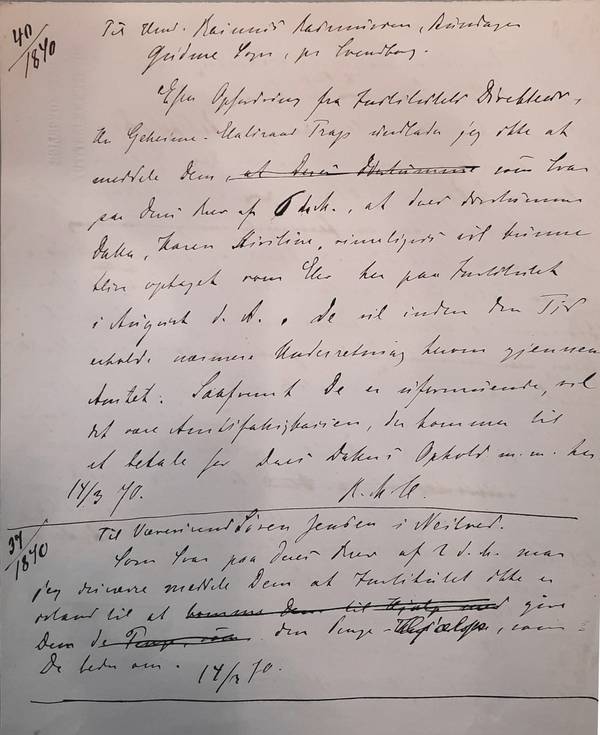 40/1870
Til Hmd. Rasmus Rasmussen,
Gudme Sogn, pr Svendborg.
Efter Opfordring fra Institutets Direkteur,
Hr Geheime-Etatsraad Trap undlader jeg ikke at
meddele Dem, at Deres som Svar
paa Deres Brev af 6 d.M., at Deres døvstumme
Datter, Karen Kirstine, rimeligvis vil kunne
blive optaget som Elev her paa Institutet
i August d. A. De vil inden den Tid
erholde nærmere Underretning herom gjennem
Amtet. Saafremt De er uformuende, vil
det være Amtsfattigkassen, der kommer til
at betale for Deres Datters Ophold m.m. her
14/3 70.
37/1870
Til Væversvend Søren Jensen i Veilved.
Som Svar paa Deres Brev af 2 d.M. maa
jeg desværre meddele Dem at Institutet ikke er
istand til at komme Dem til Hjælp med give
Dem den Penge-Hjælp, som
De beder om. 14/3 70.